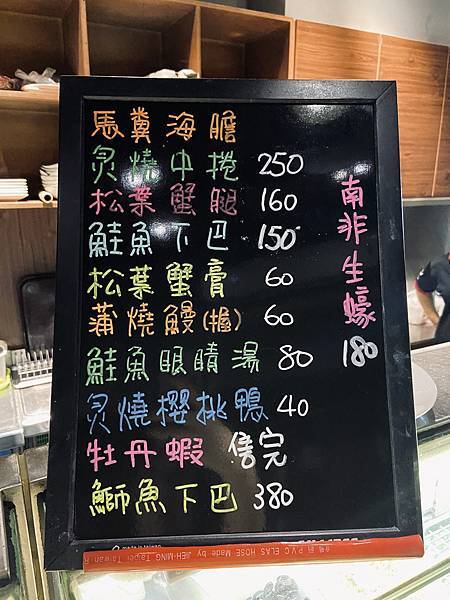 馬糞海膽
炙燒中捲 250
松葉蟹腿 160
鮭魚下巴 150
松葉蟹膏 60
蒲燒鰻(握) 60
鮭魚眼睛湯 80
炙燒櫻桃鴨 40
牡丹蝦 售完
鰤魚下巴 380
南非生蠔 180
P.V.C ELAS HOSE Made by JIEH-MING Taipei Taiwan R